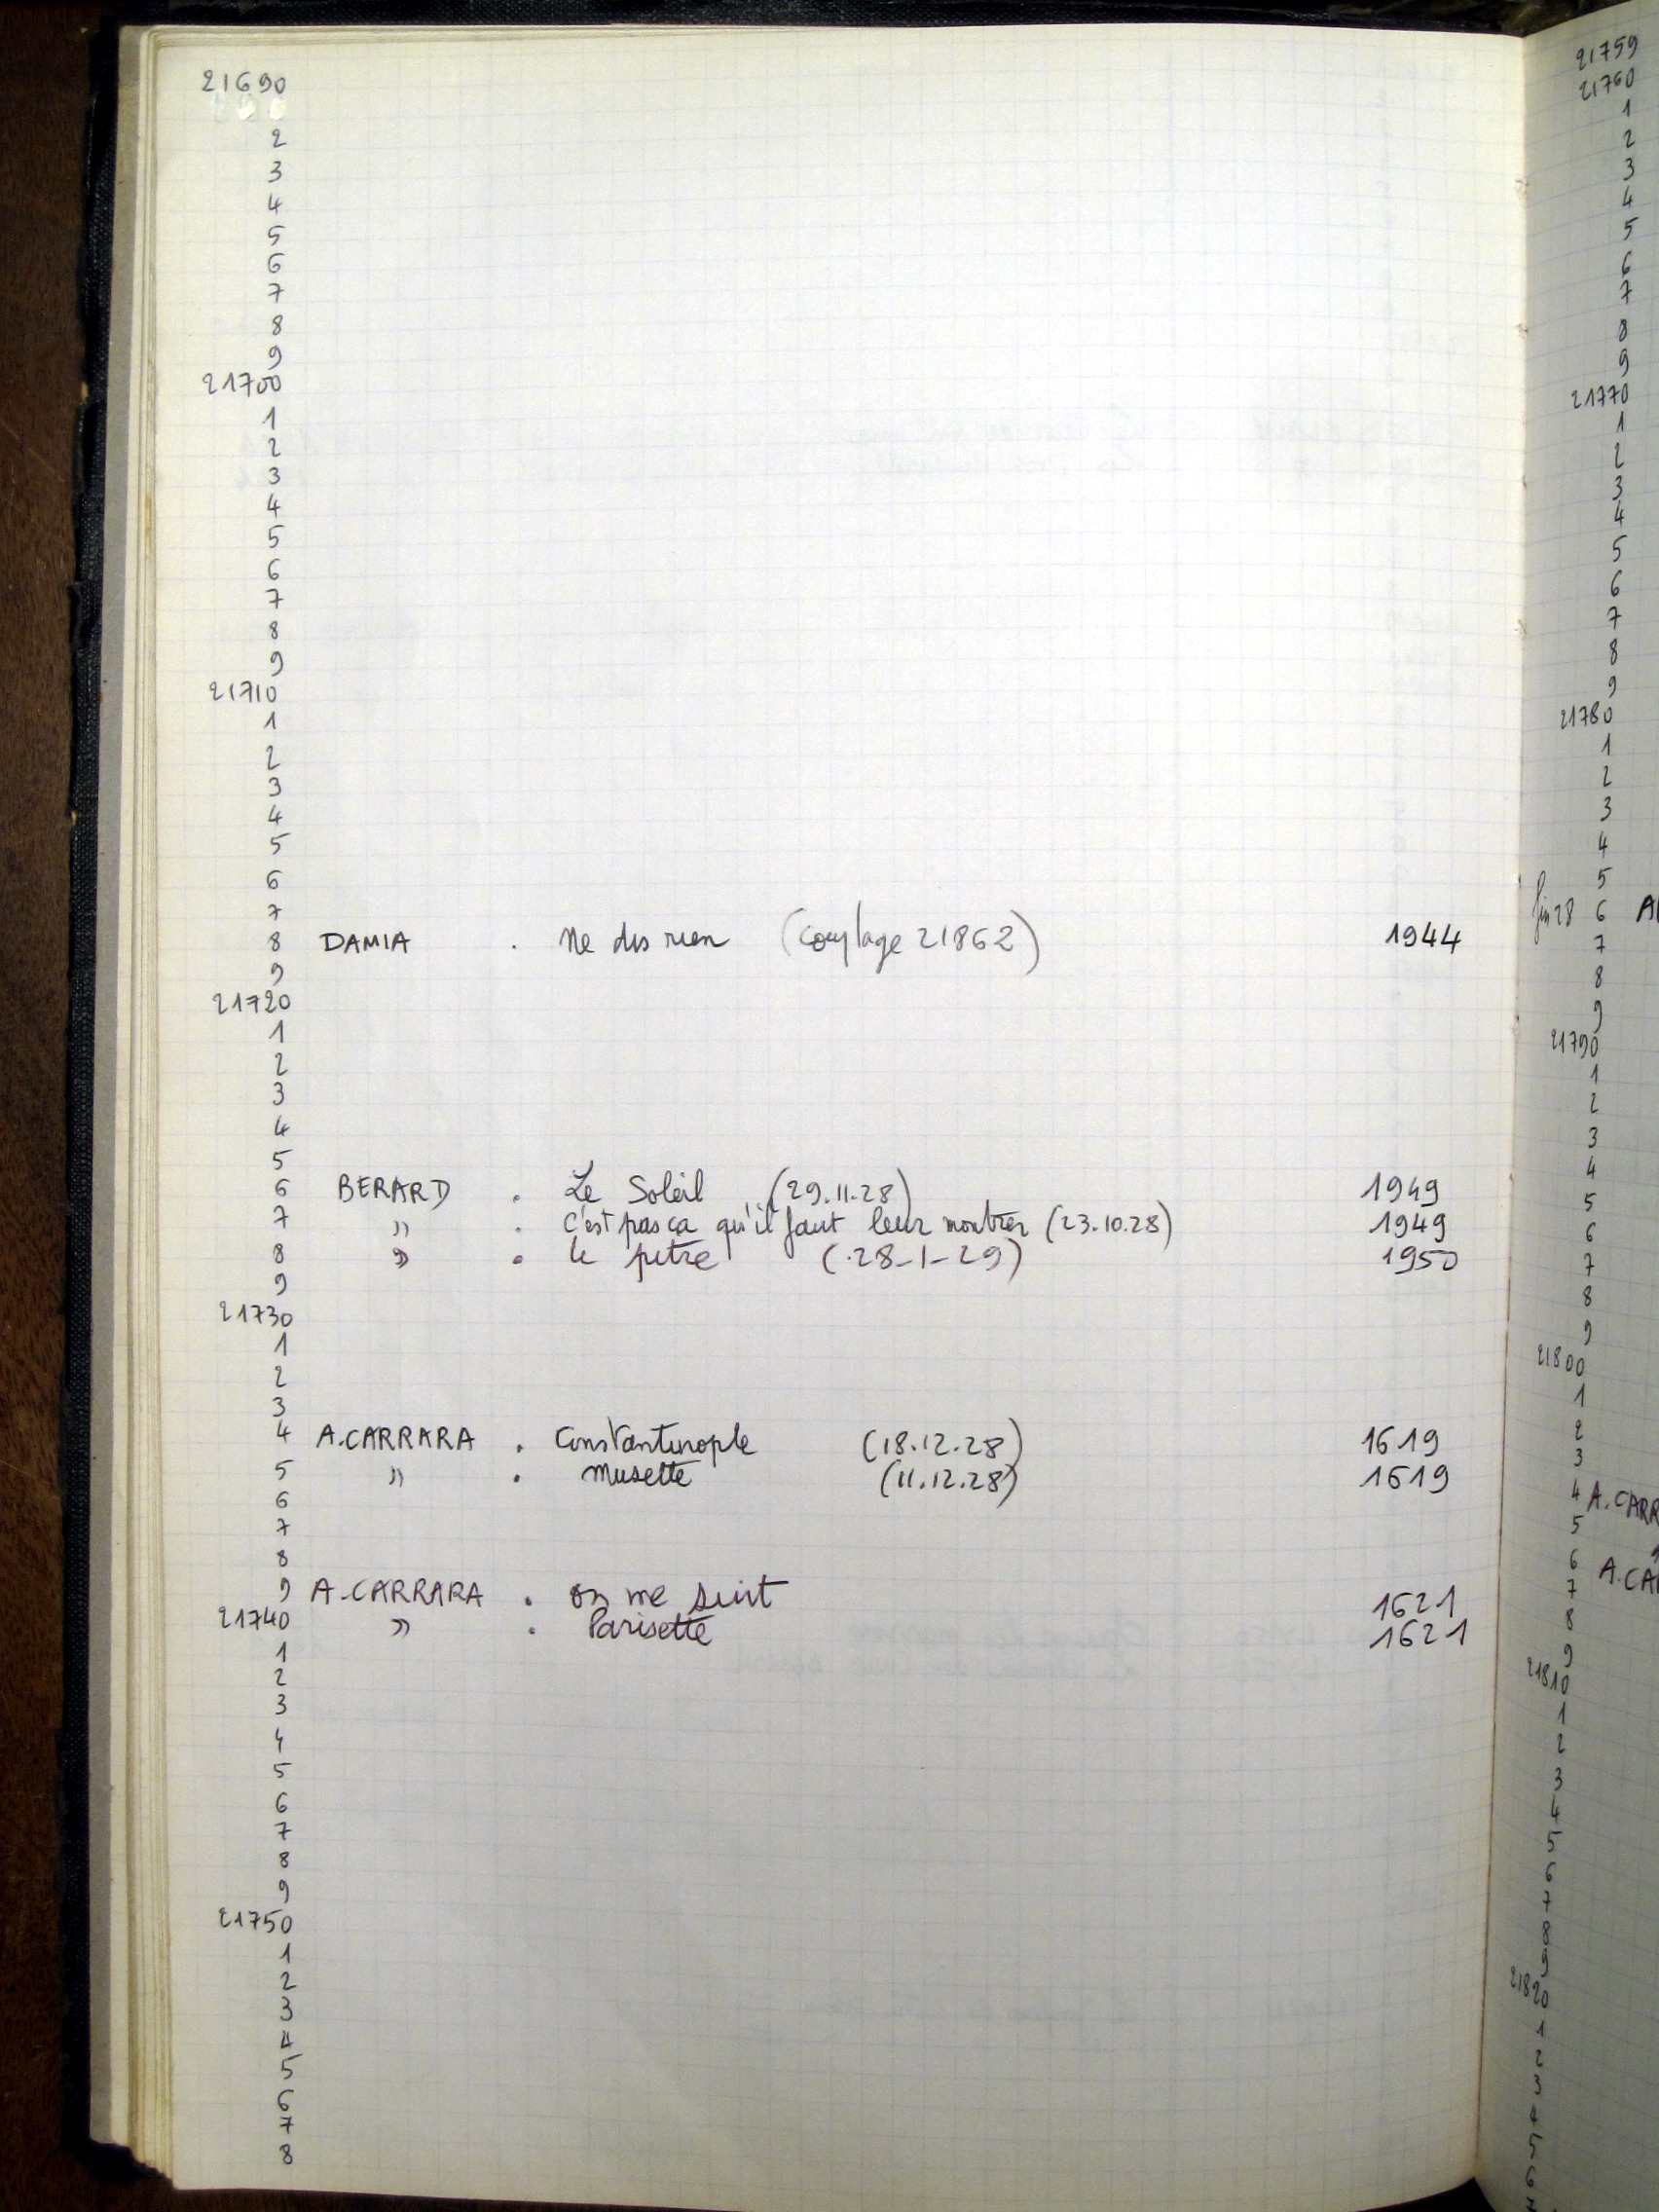 21690
2
3
4
5
6
7
8
9
21700
1
2
3
4
5
6
7
8
9
21710
1
2
3
4
5
6
7
8 DAMIA . Ne dis rien (couplage 21862) 1944
9
21720
1
2
3
4
5
6 BERARD . Le Soleil (29.11.28) 1949
7 " . c'est pas ca qu'il faut leur montrer (23.10.28) 1949
8 " . le pitre (28-1-29) 1950
9
21730
1
2
3
4 A.CARRARA . Constantinople (18.12.28) 1619
5 " . musette (11.12.28) 1619
6
7
8
9 A.CARRARA . on me suit 1621
21740 " . Parisette 1621
1
2
3
4
5
6
7
8
9
21750
1
2
3
4
5
6
7
8
21759
21760
1
2
3
4
5
6
7
8
9
21770
1
2
3
4
5
6
7
8
9
21780
1
2
3
4
5
fin 28 6 A
7
8
9
21790
1
2
3
4
5
6
7
8
9
21800
1
2
3
4 A.CARR
5
6 A.CA
7
8
9
21810
1
2
3
4
5
6
7
8
9
21820
1
2
3
4
5
6
7